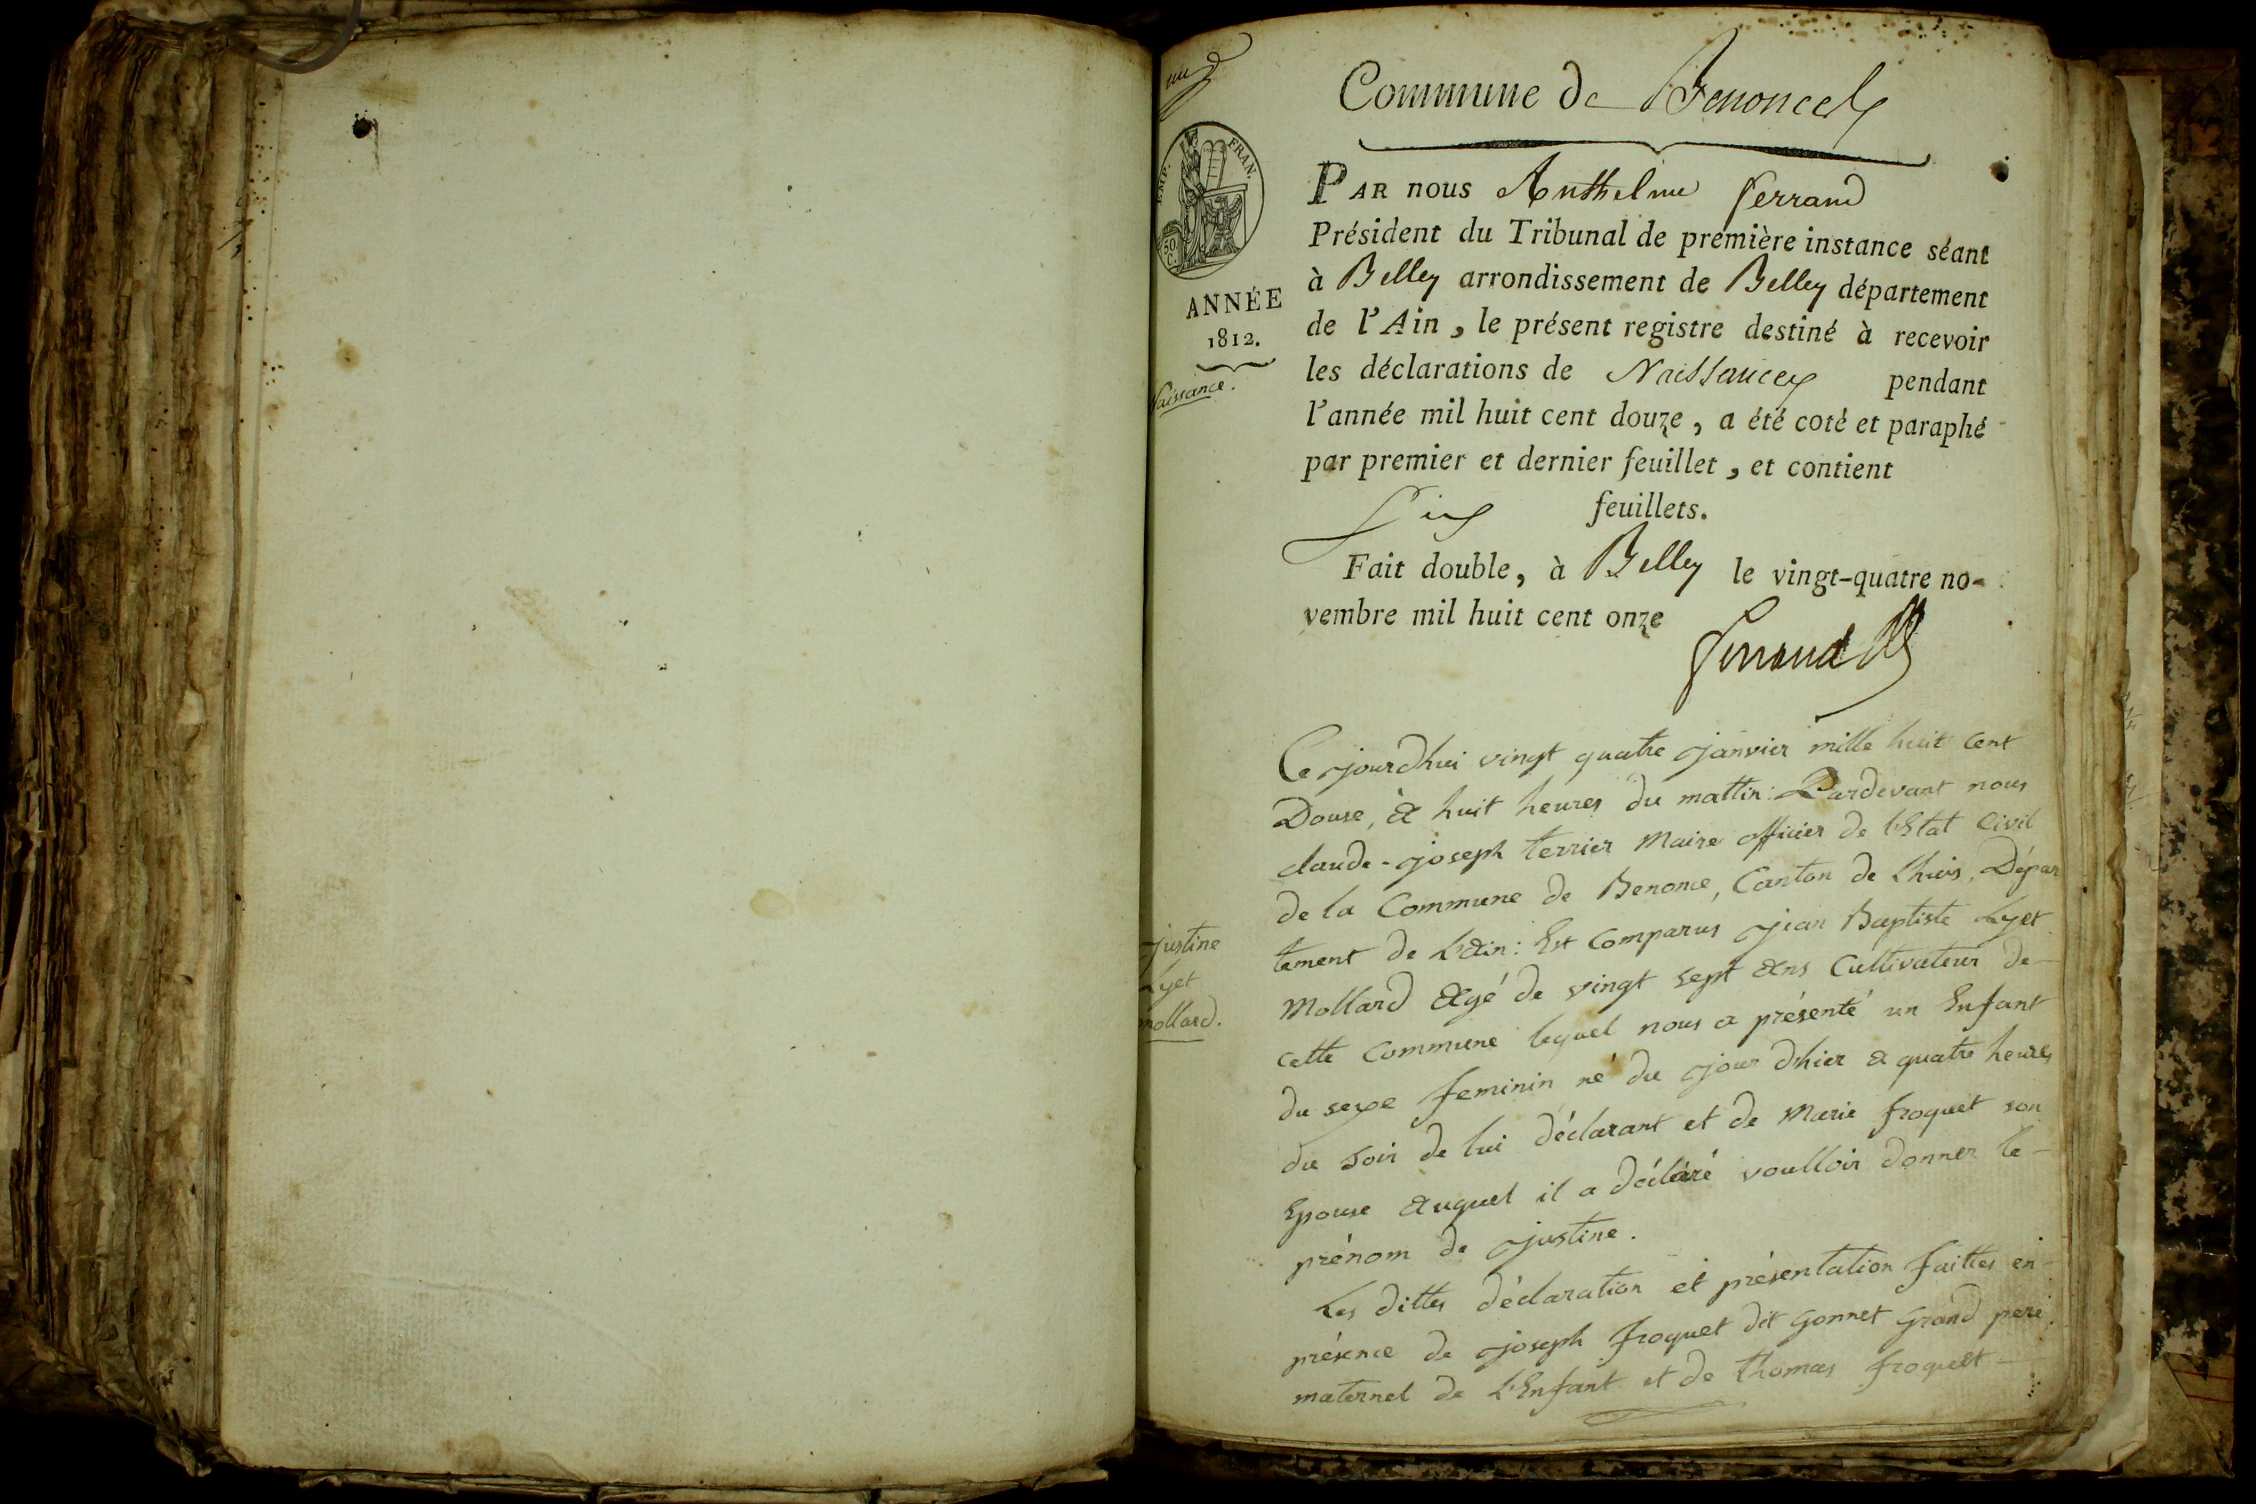 Commune de Benonces
EMP. FRAN.
50
C.
ANNÉE
1812.
Naissance.
PAR nous Anthelme ferrand
Président du Tribunal de première instance séant
à Belley arrondissement de Belley département
de l'Ain, le présent registre destiné à recevoir
les déclarations de Naissances pendant
l'année mil huit cent douze, a été coté et paraphé
par premier et dernier feuillet, et contient
Six feuillets.
Fait double, à Belley le vingt-quatre no-
vembre mil huit cent onze
ferrand
justine
Lyet
mollard.
Ce jourdhui vingt quatre janvier mille huit cent
Douse, à huit heures du mattin: Pardevant nous
claude-joseph terrier Maire officier de l'Etat Civil
de la Commune de Benonce, Canton de Lhuis, Dépar
tement de L'ain: Est Comparus jean Baptiste Lyet
Mollard agé de vingt sept ans Cultivateur de
cette Commune lequel nous a présenté un Enfant
du sexe feminin né du jour d'hier a quatre heures
du soir de lui déclarant et de Marie froquet son
Epouse auquel il a déclaré voulloir donner le
prénom de justine.
Les dittes déclaration et présentation faittes en
présence de joseph froquet dit Gonnet Grand pere
maternel de L'Enfant et de thomas froquet